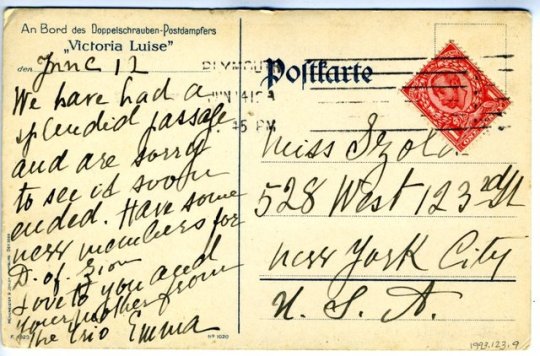 An Bord des Doppelschrauben-Postdampfers
„Victoria Luise"
den June 12
We have had a
splendid passage
and are sorry
to see it soon
ended. Have some
new members for
D. of. Zion
Love to you and
your mother from
the trio Emma
PLYMOUTH
JUN 14 12
45 PM
Postkarte
Miss Szold
528 West 123rd St
New York City
U. S. A.
Nº 1020
1993.123.9